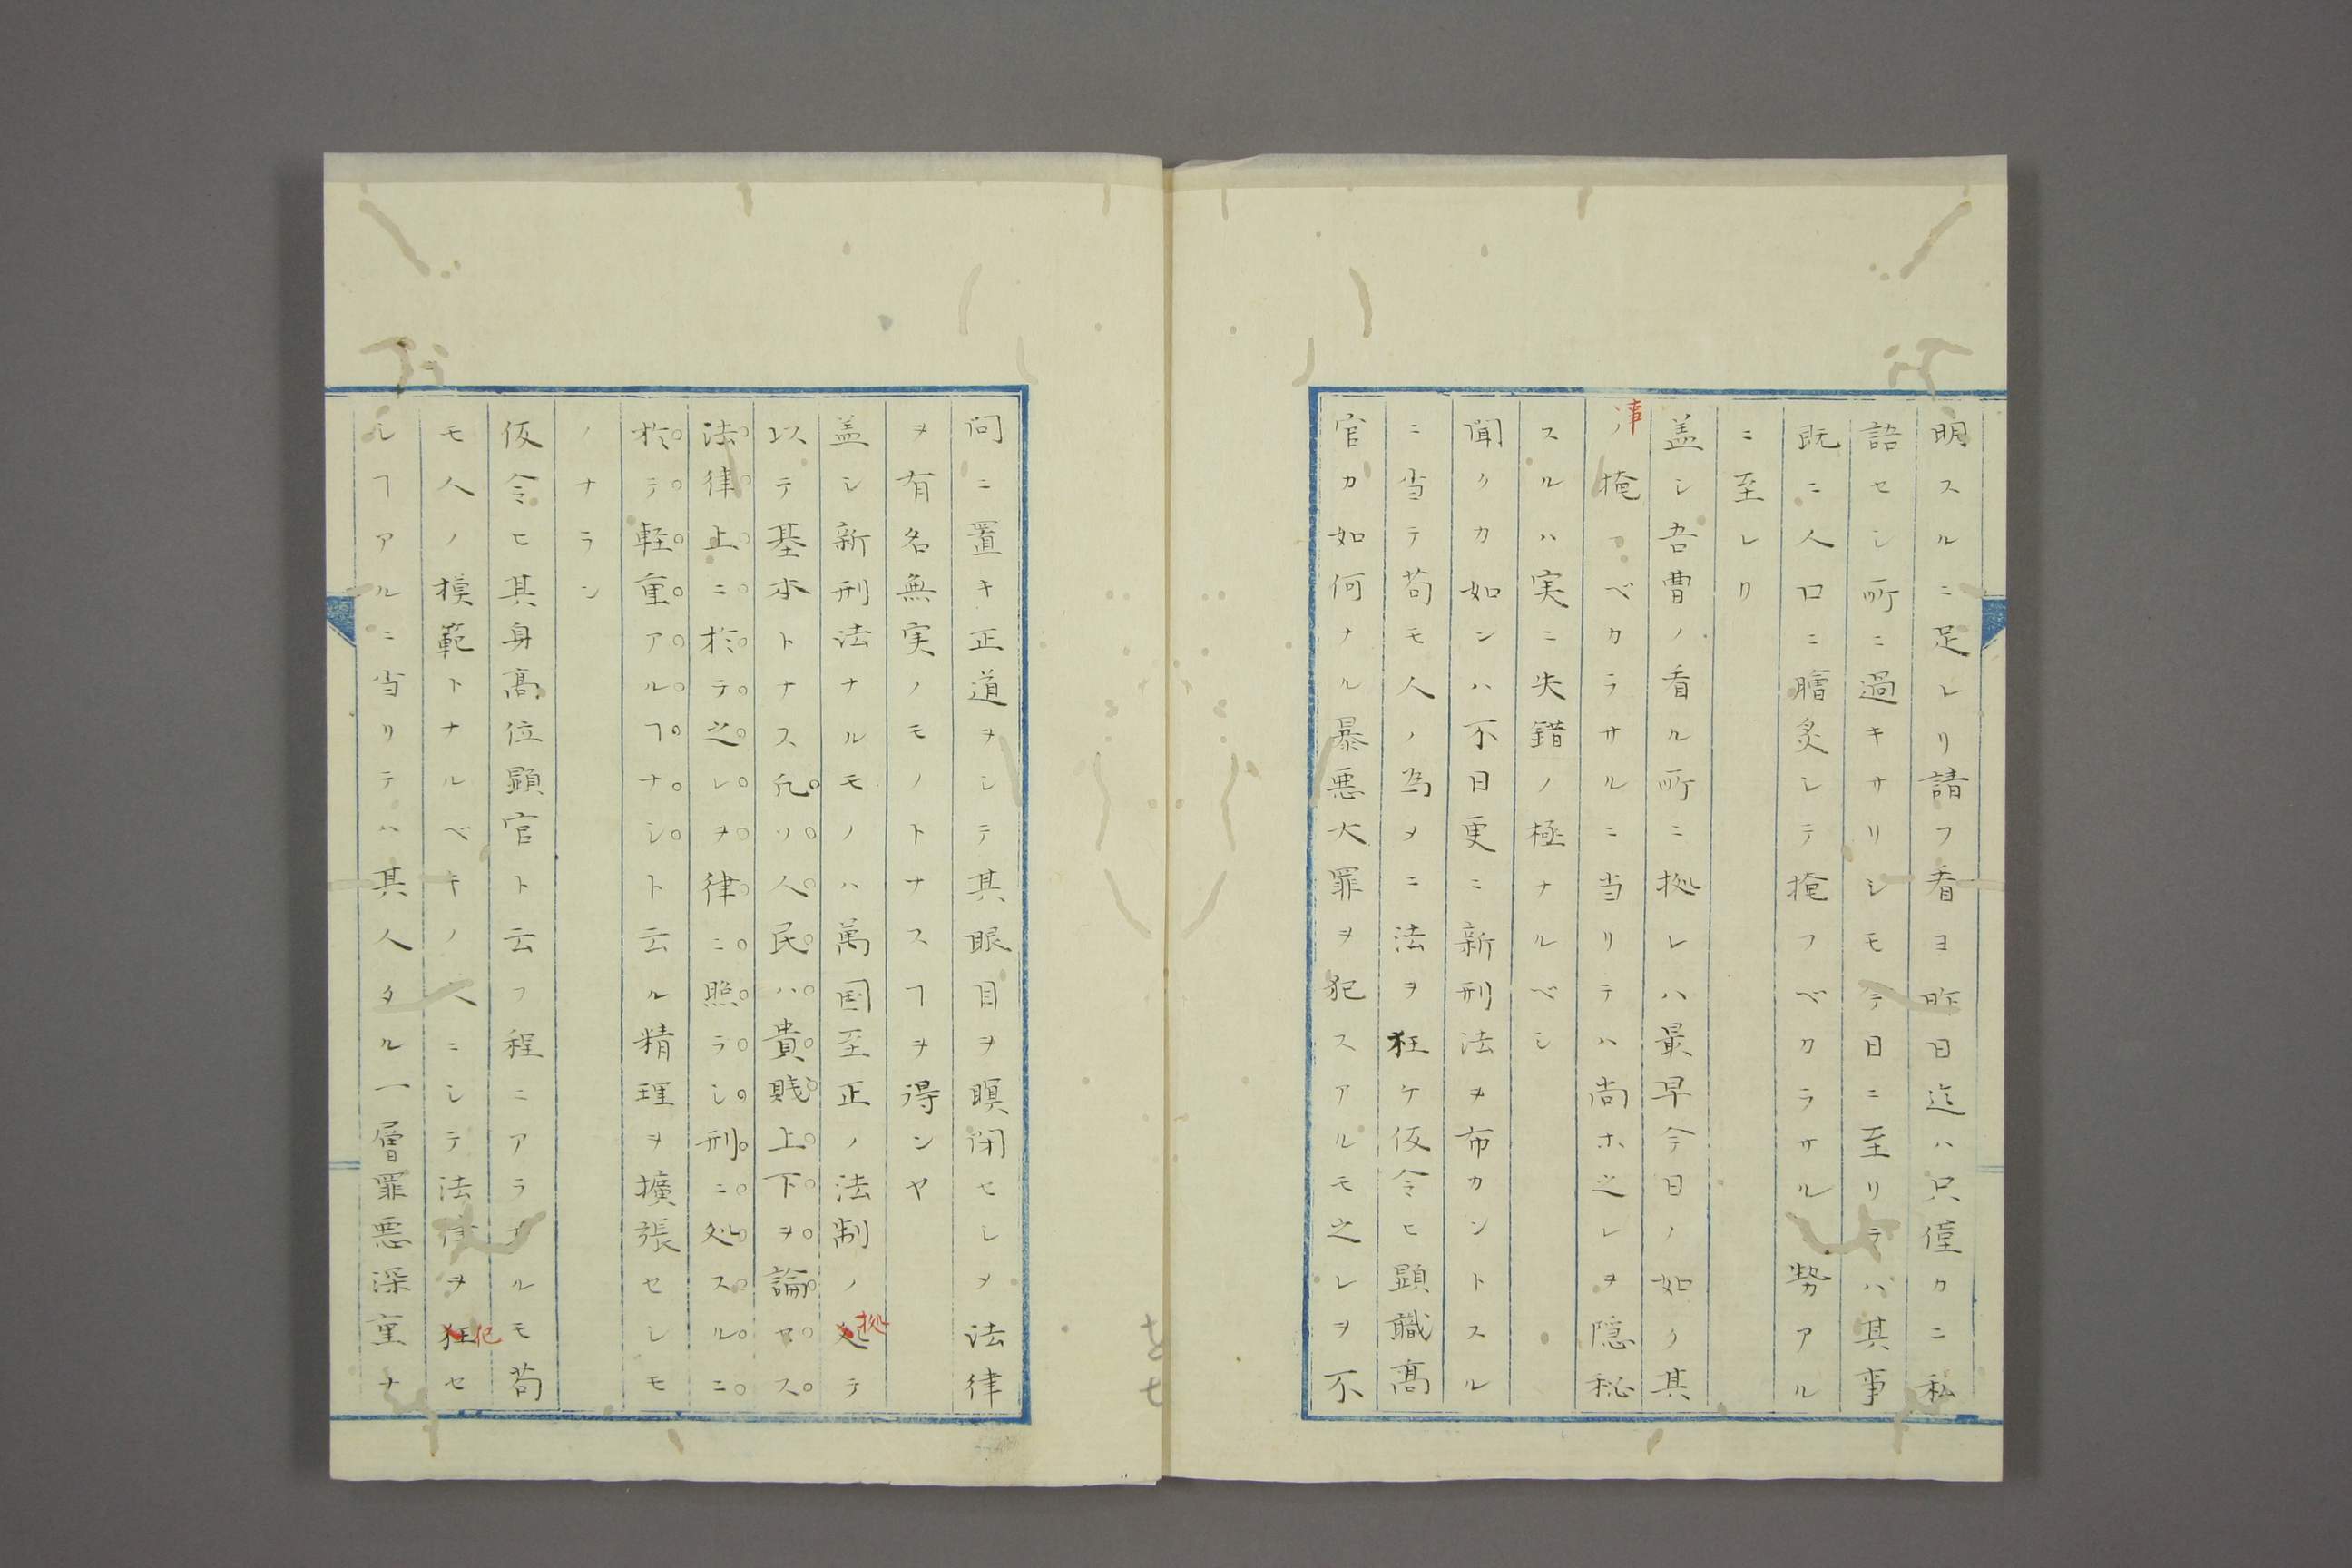 明スルニ足レリ請フ看ヨ昨日迄ハ只僅カニ私
語セシ所ニ過キサリシモ今日ニ至リテハ其事
既ニ人口ニ膾炙シテ掩フベカラサル勢アル
ニ至レリ
盖シ吾曹ノ看ル所ニ拠レハ最早今日ノ如ク其
事掩フベカラサルニ当リテハ尚ホ之レヲ隠秘
スルハ実ニ失錯ノ極ナルベシ
聞クカ如ンハ不日更ニ新刑法ヲ布カントスル
ニ当テ苟モ人ノ為メニ法ヲ狂ケ仮令ヒ顕職高
官カ如何ナル暴悪大罪ヲ犯スアルモ之レヲ不
問ニ置キ正道ヲシテ其眼目ヲ瞑閉セシメ法律
ヲ有名無実ノモノトナスヿヲ得ンヤ
盖シ新刑法ナルモノハ萬国至正ノ法制ノ拠テ
以テ基本トナス凡ソ人民ハ貴賎上下ヲ論セス
法律上ニ於テ之レヲ律ニ照ラシ刑ニ処スルニ
於テ軽重アルヿナシト云ル精理ヲ擴張セシモ
ノナラン
仮令ヒ其身高位顕官ト云フ程ニアラサルモ苟
モ人ノ模範トナルベキノ人ニシテ法律ヲ犯セ
シヿアルニ当リテハ其人タル一層罪悪深重ナ